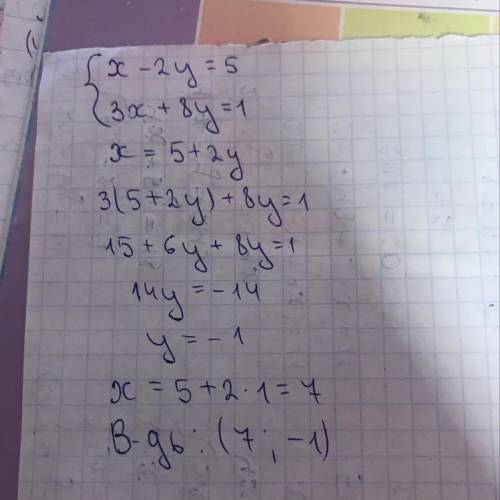 { x - 2y = 5
3x + 8y = 1
x = 5 + 2y
3(5 + 2y) + 8y = 1
15 + 6y + 8y = 1
14y = -14
y = -1
x = 5 + 2 · 1 = 7
В-дь: (7; -1)